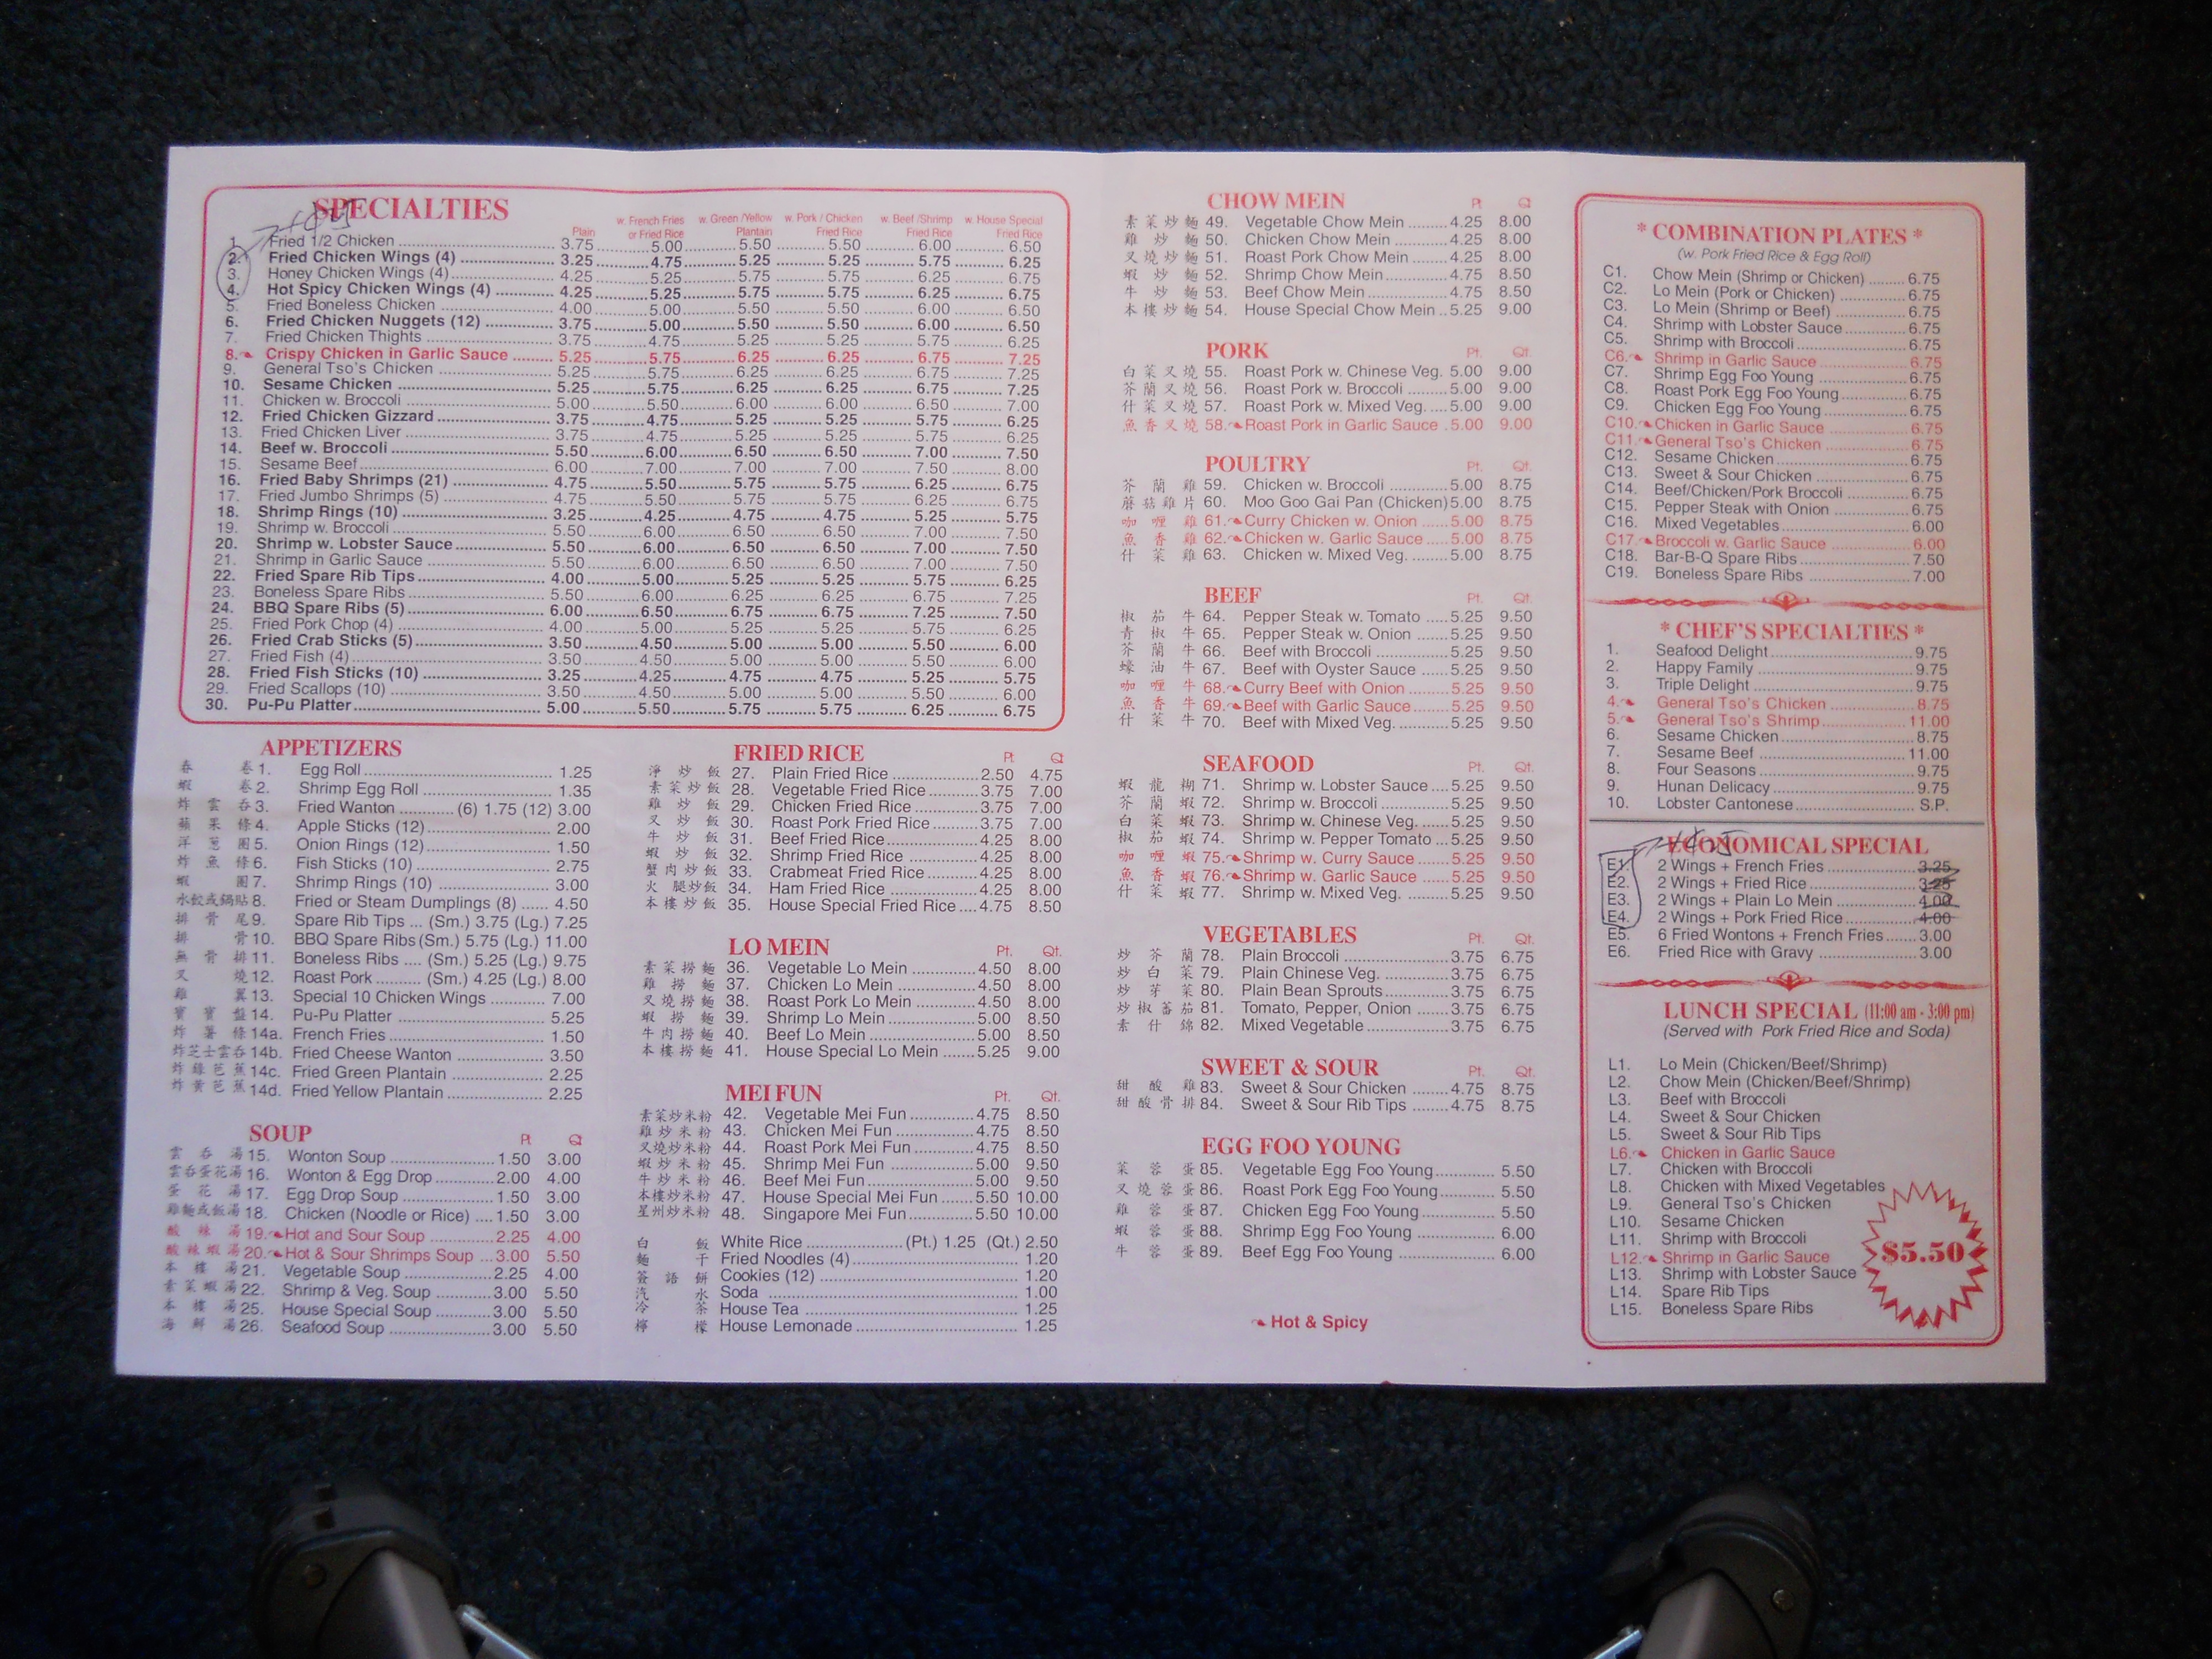 SPECIALTIES
Plain
w. French Fries or Fried Rice
w. Green /Yellow Plantain
w. Pork / Chicken Fried Rice
w. Beef /Shrimp Fried Rice
w. House Special Fried Rice
1. Fried 1/2 Chicken 3.75 5.00 5.50 5.50 6.00 6.50
2. Fried Chicken Wings (4) 3.25 4.75 5.25 5.25 5.75 6.25
3. Honey Chicken Wings (4) 4.25 5.25 5.75 5.75 6.25 6.75
4. Hot Spicy Chicken Wings (4) 4.25 5.25 5.75 5.75 6.25 6.75
5. Fried Boneless Chicken 4.00 5.00 5.50 5.50 6.00 6.50
6. Fried Chicken Nuggets (12) 3.75 5.00 5.50 5.50 6.00 6.50
7. Fried Chicken Thights 3.75 4.75 5.25 5.25 5.75 6.25
8. Crispy Chicken in Garlic Sauce 5.25 5.75 6.25 6.25 6.75 7.25
9. General Tso's Chicken 5.25 5.75 6.25 6.25 6.75 7.25
10. Sesame Chicken 5.25 5.75 6.25 6.25 6.75 7.25
11. Chicken w. Broccoli 5.00 5.50 6.00 6.00 6.50 7.00
12. Fried Chicken Gizzard 3.75 4.75 5.25 5.25 5.75 6.25
13. Fried Chicken Liver 3.75 4.75 5.25 5.25 5.75 6.25
14. Beef w. Broccoli 5.50 6.00 6.50 6.50 7.00 7.50
15. Sesame Beef 6.00 7.00 7.00 7.00 7.50 8.00
16. Fried Baby Shrimps (21) 4.75 5.50 5.75 5.75 6.25 6.75
17. Fried Jumbo Shrimps (5) 4.75 5.50 5.75 5.75 6.25 6.75
18. Shrimp Rings (10) 3.25 4.25 4.75 4.75 5.25 5.75
19. Shrimp w. Broccoli 5.50 6.00 6.50 6.50 7.00 7.50
20. Shrimp w. Lobster Sauce 5.50 6.00 6.50 6.50 7.00 7.50
21. Shrimp in Garlic Sauce 5.50 6.00 6.50 6.50 7.00 7.50
22. Fried Spare Rib Tips 4.00 5.00 5.25 5.25 5.75 6.25
23. Boneless Spare Ribs 5.50 6.00 6.25 6.25 6.75 7.25
24. BBQ Spare Ribs (5) 6.00 6.50 6.75 6.75 7.25 7.50
25. Fried Pork Chop (4) 4.00 5.00 5.25 5.25 5.75 6.25
26. Fried Crab Sticks (5) 3.50 4.50 5.00 5.00 5.50 6.00
27. Fried Fish (4) 3.50 4.50 5.00 5.00 5.50 6.00
28. Fried Fish Sticks (10) 3.25 4.25 4.75 4.75 5.25 5.75
29. Fried Scallops (10) 3.50 4.50 5.00 5.00 5.50 6.00
30. Pu-Pu Platter 5.00 5.50 5.75 5.75 6.25 6.75
APPETIZERS
春卷 1. Egg Roll 1.25
蝦卷 2. Shrimp Egg Roll 1.35
炸雲吞 3. Fried Wanton (6) 1.75 (12) 3.00
蘋果條 4. Apple Sticks (12) 2.00
洋蔥圈 5. Onion Rings (12) 1.50
炸魚條 6. Fish Sticks (10) 2.75
蝦圈 7. Shrimp Rings (10) 3.00
水餃或鍋貼 8. Fried or Steam Dumplings (8) 4.50
排骨尾 9. Spare Rib Tips ... (Sm.) 3.75 (Lg.) 7.25
排骨 10. BBQ Spare Ribs (Sm.) 5.75 (Lg.) 11.00
無骨排 11. Boneless Ribs .... (Sm.) 5.25 (Lg.) 9.75
叉燒 12. Roast Pork (Sm.) 4.25 (Lg.) 8.00
雞翼 13. Special 10 Chicken Wings 7.00
寶寶盤 14. Pu-Pu Platter 5.25
炸薯條 14a. French Fries 1.50
炸芝士雲吞 14b. Fried Cheese Wanton 3.50
炸綠芭蕉 14c. Fried Green Plantain 2.25
炸黃芭蕉 14d. Fried Yellow Plantain 2.25
SOUP Pt Qt
雲吞湯 15. Wonton Soup 1.50 3.00
雲吞蛋花湯 16. Wonton & Egg Drop 2.00 4.00
蛋花湯 17. Egg Drop Soup 1.50 3.00
雞麵或飯湯 18. Chicken (Noodle or Rice) 1.50 3.00
酸辣湯 19. Hot and Sour Soup 2.25 4.00
酸辣蝦湯 20. Hot & Sour Shrimps Soup 3.00 5.50
本樓湯 21. Vegetable Soup 2.25 4.00
素菜蝦湯 22. Shrimp & Veg. Soup 3.00 5.50
本樓湯 25. House Special Soup 3.00 5.50
海鮮湯 26. Seafood Soup 3.00 5.50
FRIED RICE Pt Qt
淨炒飯 27. Plain Fried Rice 2.50 4.75
素菜炒飯 28. Vegetable Fried Rice 3.75 7.00
雞炒飯 29. Chicken Fried Rice 3.75 7.00
叉炒飯 30. Roast Pork Fried Rice 3.75 7.00
牛炒飯 31. Beef Fried Rice 4.25 8.00
蝦炒飯 32. Shrimp Fried Rice 4.25 8.00
蟹肉炒飯 33. Crabmeat Fried Rice 4.25 8.00
火腿炒飯 34. Ham Fried Rice 4.25 8.00
本樓炒飯 35. House Special Fried Rice 4.75 8.50
LO MEIN Pt. Qt.
素菜撈麵 36. Vegetable Lo Mein 4.50 8.00
雞撈麵 37. Chicken Lo Mein 4.50 8.00
叉燒撈麵 38. Roast Pork Lo Mein 4.50 8.00
蝦撈麵 39. Shrimp Lo Mein 5.00 8.50
牛肉撈麵 40. Beef Lo Mein 5.00 8.50
本樓撈麵 41. House Special Lo Mein 5.25 9.00
MEI FUN Pt. Qt.
素菜炒米粉 42. Vegetable Mei Fun 4.75 8.50
雞炒米粉 43. Chicken Mei Fun 4.75 8.50
叉燒炒米粉 44. Roast Pork Mei Fun 4.75 8.50
蝦炒米粉 45. Shrimp Mei Fun 5.00 9.50
牛炒米粉 46. Beef Mei Fun 5.00 9.50
本樓炒米粉 47. House Special Mei Fun 5.50 10.00
星州炒米粉 48. Singapore Mei Fun 5.50 10.00
白飯 White Rice (Pt.) 1.25 (Qt.) 2.50
麵干 Fried Noodles (4) 1.20
簽語餅 Cookies (12) 1.20
汽水 Soda 1.00
冷茶 House Tea 1.25
檸檬 House Lemonade 1.25
CHOW MEIN Pt Qt
素菜炒麵 49. Vegetable Chow Mein 4.25 8.00
雞炒麵 50. Chicken Chow Mein 4.25 8.00
叉燒炒麵 51. Roast Pork Chow Mein 4.25 8.00
蝦炒麵 52. Shrimp Chow Mein 4.75 8.50
牛炒麵 53. Beef Chow Mein 4.75 8.50
本樓炒麵 54. House Special Chow Mein 5.25 9.00
PORK Pt. Qt.
白菜叉燒 55. Roast Pork w. Chinese Veg. 5.00 9.00
芥蘭叉燒 56. Roast Pork w. Broccoli 5.00 9.00
什菜叉燒 57. Roast Pork w. Mixed Veg. 5.00 9.00
魚香叉燒 58. Roast Pork in Garlic Sauce 5.00 9.00
POULTRY Pt. Qt.
芥蘭雞 59. Chicken w. Broccoli 5.00 8.75
蘑菇雞片 60. Moo Goo Gai Pan (Chicken) 5.00 8.75
咖喱雞 61. Curry Chicken w. Onion 5.00 8.75
魚香雞 62. Chicken w. Garlic Sauce 5.00 8.75
什菜雞 63. Chicken w. Mixed Veg. 5.00 8.75
BEEF Pt. Qt.
椒茄牛 64. Pepper Steak w. Tomato 5.25 9.50
青椒牛 65. Pepper Steak w. Onion 5.25 9.50
芥蘭牛 66. Beef with Broccoli 5.25 9.50
蠔油牛 67. Beef with Oyster Sauce 5.25 9.50
咖喱牛 68. Curry Beef with Onion 5.25 9.50
魚香牛 69. Beef with Garlic Sauce 5.25 9.50
什菜牛 70. Beef with Mixed Veg. 5.25 9.50
SEAFOOD Pt. Qt.
蝦龍糊 71. Shrimp w. Lobster Sauce 5.25 9.50
芥蘭蝦 72. Shrimp w. Broccoli 5.25 9.50
白菜蝦 73. Shrimp w. Chinese Veg. 5.25 9.50
椒茄蝦 74. Shrimp w. Pepper Tomato 5.25 9.50
咖喱蝦 75. Shrimp w. Curry Sauce 5.25 9.50
魚香蝦 76. Shrimp w. Garlic Sauce 5.25 9.50
什菜蝦 77. Shrimp w. Mixed Veg. 5.25 9.50
VEGETABLES Pt. Qt.
炒芥蘭 78. Plain Broccoli 3.75 6.75
炒白菜 79. Plain Chinese Veg. 3.75 6.75
炒芽菜 80. Plain Bean Sprouts 3.75 6.75
炒椒蕃茄 81. Tomato, Pepper, Onion 3.75 6.75
素什錦 82. Mixed Vegetable 3.75 6.75
SWEET & SOUR Pt. Qt.
甜酸雞 83. Sweet & Sour Chicken 4.75 8.75
甜酸骨排 84. Sweet & Sour Rib Tips 4.75 8.75
EGG FOO YOUNG
菜蓉蛋 85. Vegetable Egg Foo Young 5.50
叉燒蓉蛋 86. Roast Pork Egg Foo Young 5.50
雞蓉蛋 87. Chicken Egg Foo Young 5.50
蝦蓉蛋 88. Shrimp Egg Foo Young 6.00
牛蓉蛋 89. Beef Egg Foo Young 6.00
Hot & Spicy
* COMBINATION PLATES *
(w. Pork Fried Rice & Egg Roll)
C1. Chow Mein (Shrimp or Chicken) 6.75
C2. Lo Mein (Pork or Chicken) 6.75
C3. Lo Mein (Shrimp or Beef) 6.75
C4. Shrimp with Lobster Sauce 6.75
C5. Shrimp with Broccoli 6.75
C6. Shrimp in Garlic Sauce 6.75
C7. Shrimp Egg Foo Young 6.75
C8. Roast Pork Egg Foo Young 6.75
C9. Chicken Egg Foo Young 6.75
C10. Chicken in Garlic Sauce 6.75
C11. General Tso's Chicken 6.75
C12. Sesame Chicken 6.75
C13. Sweet & Sour Chicken 6.75
C14. Beef/Chicken/Pork Broccoli 6.75
C15. Pepper Steak with Onion 6.75
C16. Mixed Vegetables 6.00
C17. Broccoli w. Garlic Sauce 6.00
C18. Bar-B-Q Spare Ribs 7.50
C19. Boneless Spare Ribs 7.00
* CHEF'S SPECIALTIES *
1. Seafood Delight 9.75
2. Happy Family 9.75
3. Triple Delight 9.75
4. General Tso's Chicken 8.75
5. General Tso's Shrimp 11.00
6. Sesame Chicken 8.75
7. Sesame Beef 11.00
8. Four Seasons 9.75
9. Hunan Delicacy 9.75
10. Lobster Cantonese S.P.
ECONOMICAL SPECIAL
E1. 2 Wings + French Fries 3.25
E2. 2 Wings + Fried Rice 3.25
E3. 2 Wings + Plain Lo Mein 4.00
E4. 2 Wings + Pork Fried Rice 4.00
E5. 6 Fried Wontons + French Fries 3.00
E6. Fried Rice with Gravy 3.00
LUNCH SPECIAL (11:00 am - 3:00 pm)
(Served with Pork Fried Rice and Soda)
L1. Lo Mein (Chicken/Beef/Shrimp)
L2. Chow Mein (Chicken/Beef/Shrimp)
L3. Beef with Broccoli
L4. Sweet & Sour Chicken
L5. Sweet & Sour Rib Tips
L6. Chicken in Garlic Sauce
L7. Chicken with Broccoli
L8. Chicken with Mixed Vegetables
L9. General Tso's Chicken
L10. Sesame Chicken
L11. Shrimp with Broccoli
L12. Shrimp in Garlic Sauce
L13. Shrimp with Lobster Sauce
L14. Spare Rib Tips
L15. Boneless Spare Ribs
$5.50